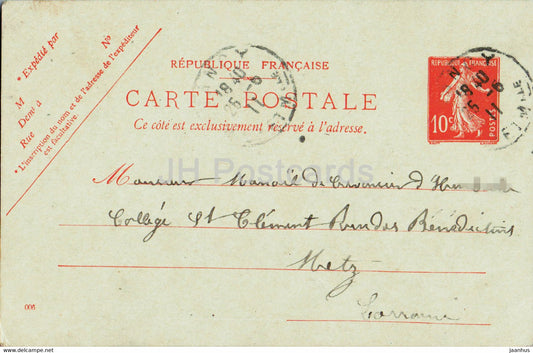 * Expédié par
No
M
Demt à
Rue
* L'inscription du nom et de l'adresse de l'expéditeur
est facultative.
RÉPUBLIQUE FRANÇAISE
CARTE POSTALE
Ce côté est exclusivement réservé à l'adresse.
REPUBLIQUE FRANÇAISE
10c
POSTES
JH Postcards
Monsieur de
Collège St Clément Rue des Bénédictins
Metz
Lorraine
006
www.jaanhus.eu
jaanhus